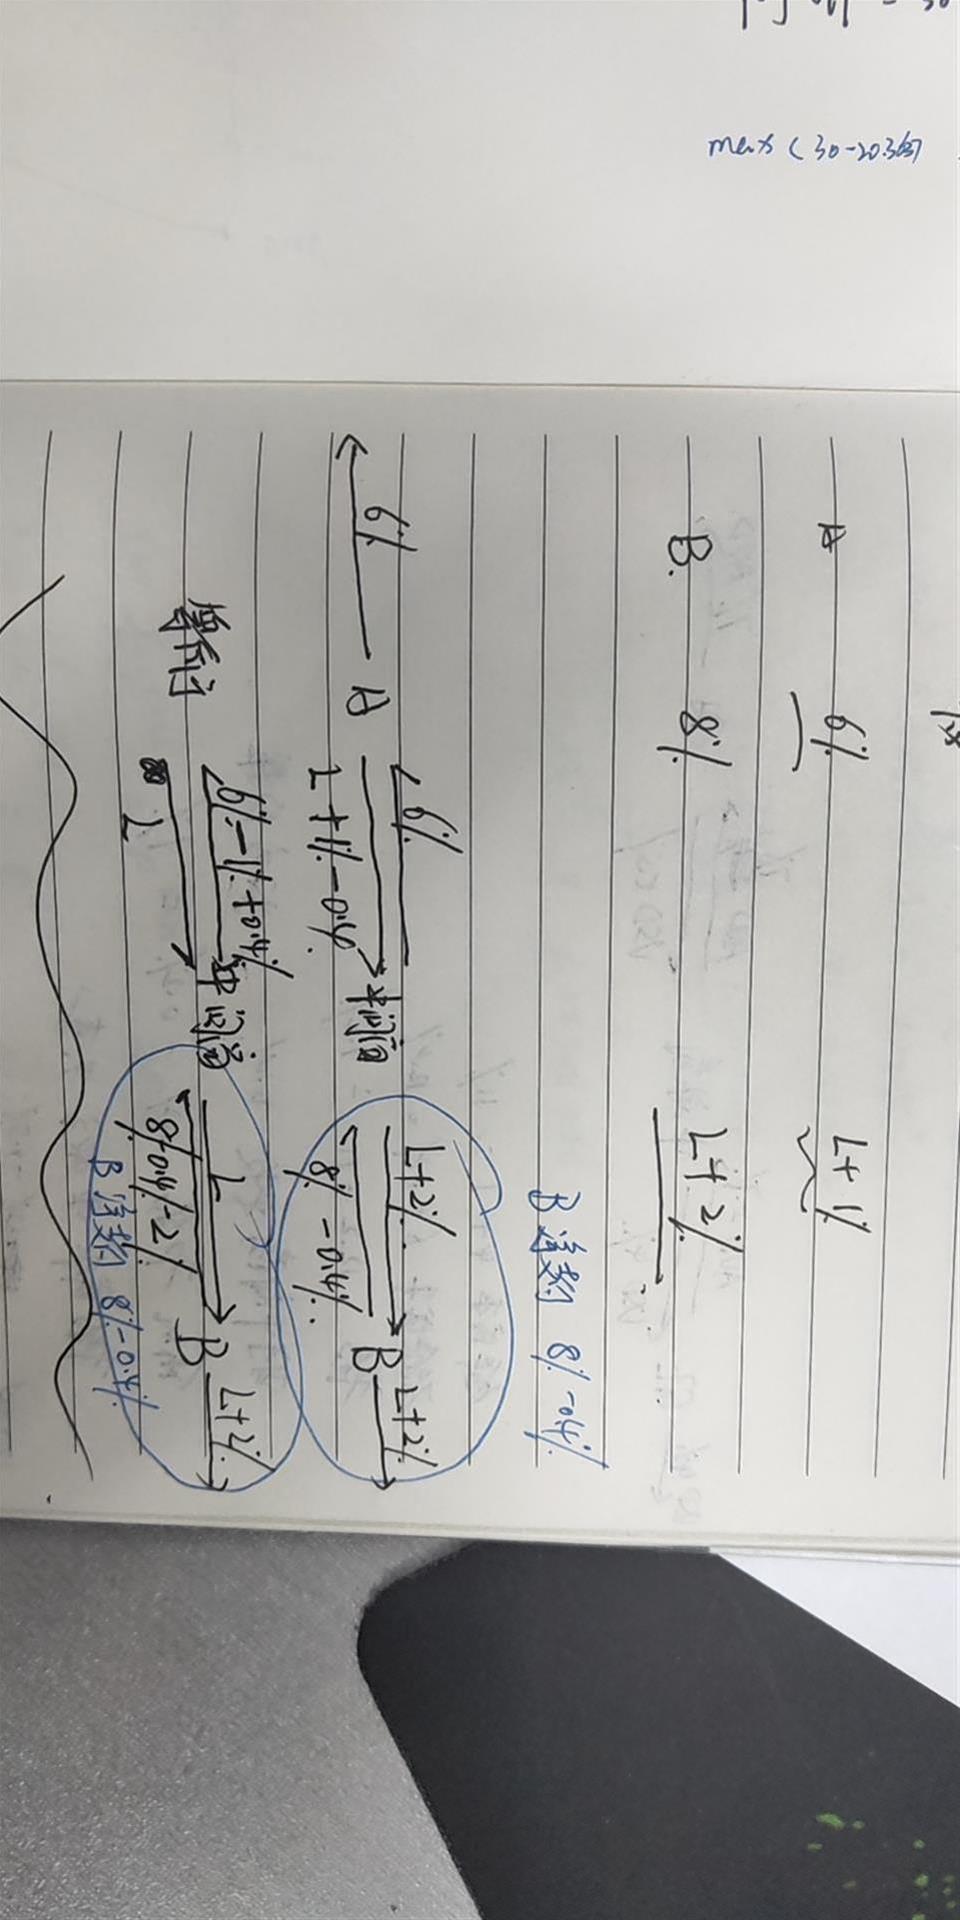 max (30-20.36)
A 6% L+1%
B. 8% L+2%
B 净支额 8%-0.4%
6% L+2%
6% A B L+2%
L+1%-0.4% 中间商 8%-0.4%
6%-1%+0.4% L L+2%
中间商 B
L 8%-0.4%-2%
B 净支额 8%-0.4%